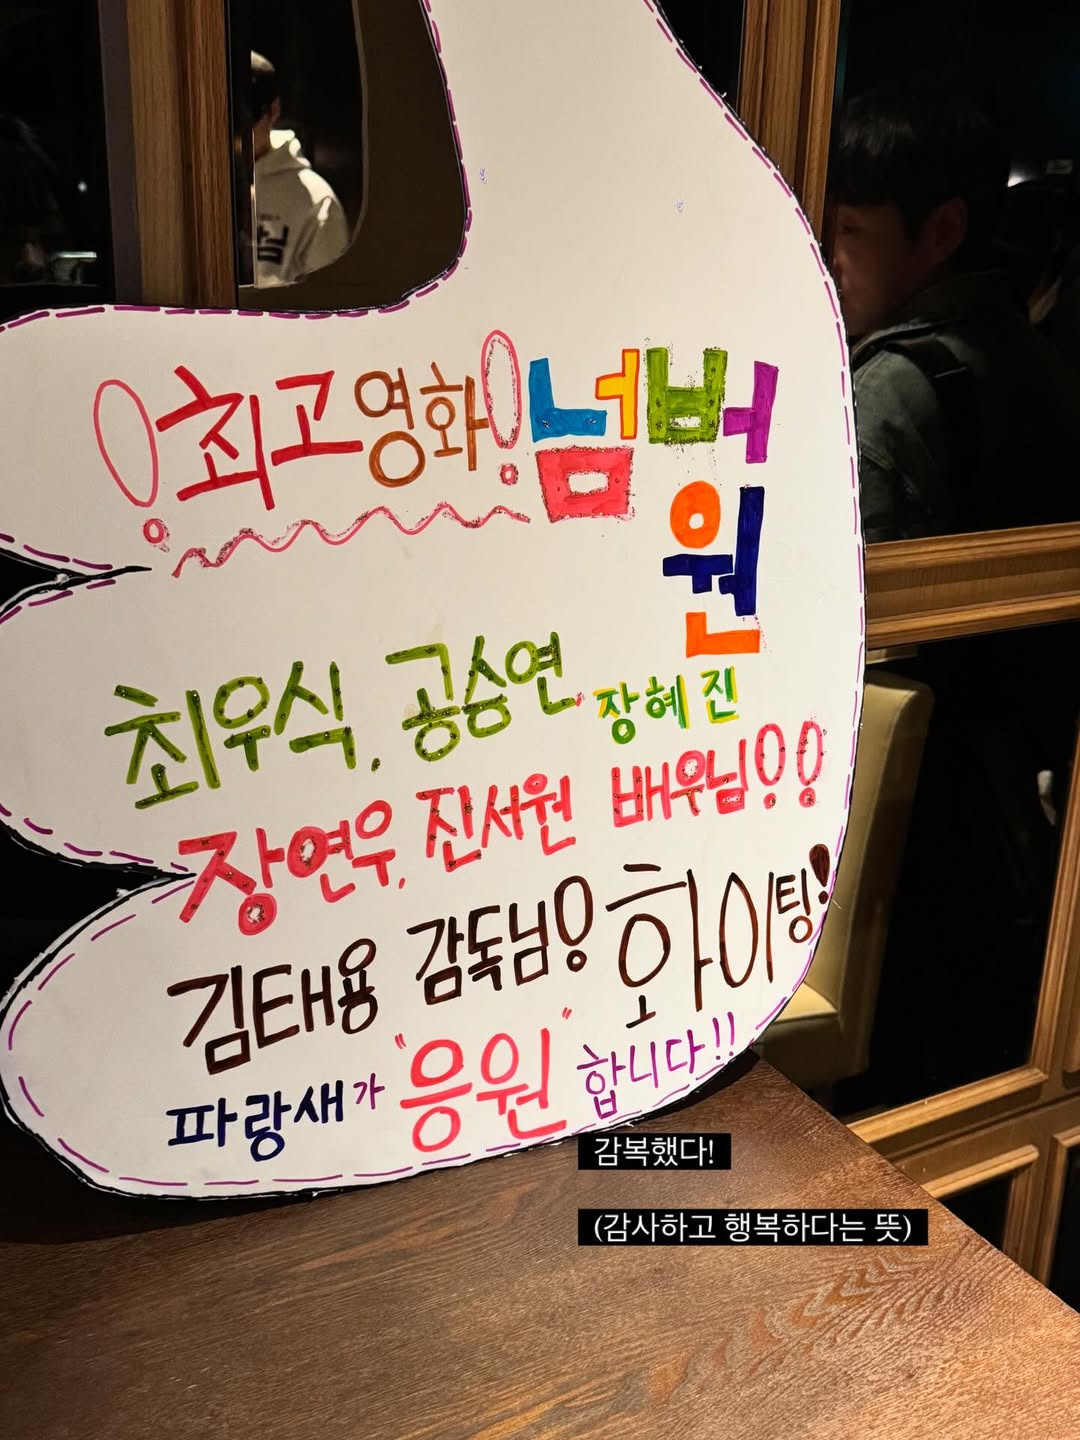 !최고영화! 넘버
원
최우식, 공승연, 장혜진
장연우, 진서원 배우님!!
김태용 감독님! 화이팅!
파랑새가 "응원" 합니다!!
감복했다!
(감사하고 행복하다는 뜻)